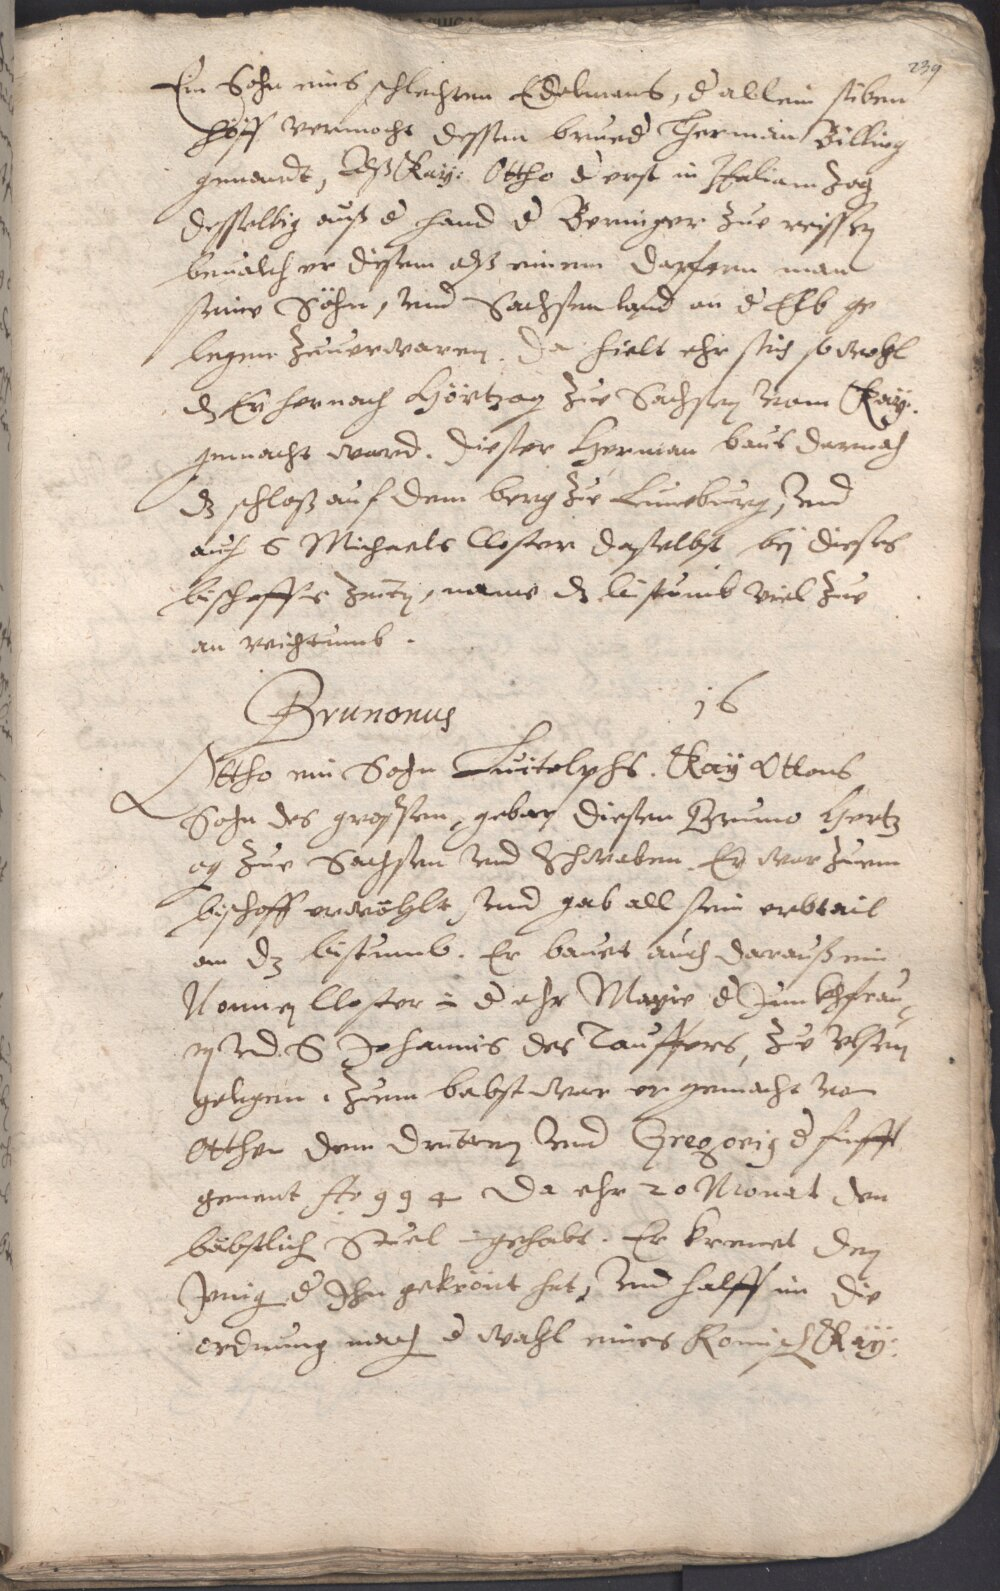 239
Ein Sohn eins schlechten Edelmans, d allein siben
höff vermocht dessen brued Herman Billing
genandt, Alß Kay: Ottho d erst in Italiam zog
desselbig auß d hand d Beringer zue reissen
beualch er diesem alß einem dapferen man
seine Söhn, vnd Sachsenland an d Elb ge
legen zuuerwaren. Da hielt ehr sich so wohl
dz Er hernach Hörtzog zue Sachsen vom Kaÿ:
gemacht ward. Dieser Herman baut darnach
dz schloß auf dem berg zue Luneburg, vnd
auch S Michaels Closter daselbst bej dieses
bischoffs Zeiten, name dz bistumb viel zue
an reichtumb.
Brunonus 16
Ottho ein Sohn Luitolphs. Kaÿ Ottons
Sohn des grossen, gebar diesen Bruno Hertz
og zue Sachsen vnd Schwaben Er war zuem
bischoff erwöhlt, vnd gab all sein erbtail
an dz bistumb. Er bauet auch darauß ein
Nonnen Closter in d ehr Marie d Junkhfrau
en vnd S Johannis des Tauffers, zue
gelegen. Zuem babst war er gemacht von
Otthen dem dritten vnd Gregorig d fifft
genent 994 Da ehr 20 Monat den
bäbstlich Stuel gehabt. Er krenet den
Jenig d Ihn gekrönt het, vnd halff im die
ordnung mach d wahl eines Romisch Kaÿ: